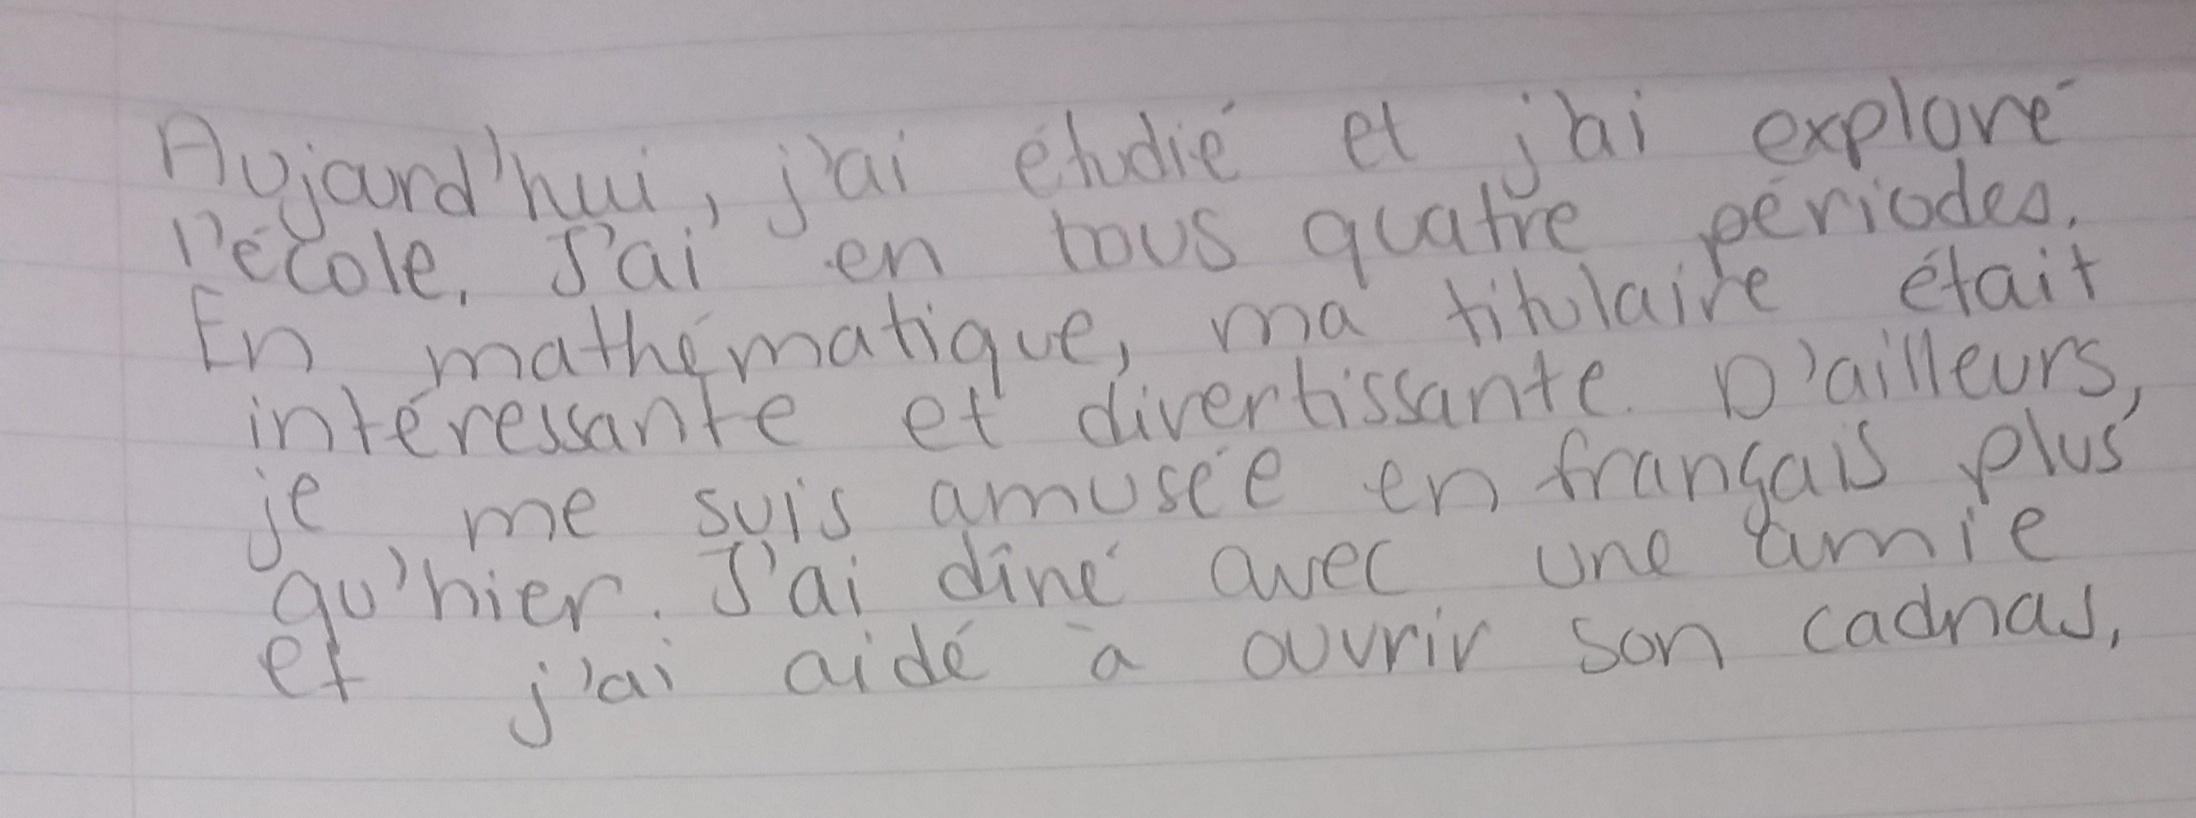 Aujourd'hui, j'ai étudié et j'ai exploré
l'école. J'ai en tous quatre périodes.
En mathématique, ma titulaire était
intéressante et divertissante. D'ailleurs,
je me suis amusée en français plus
qu'hier. J'ai dîné avec une amie
et j'ai aidé à ouvrir son cadnas.